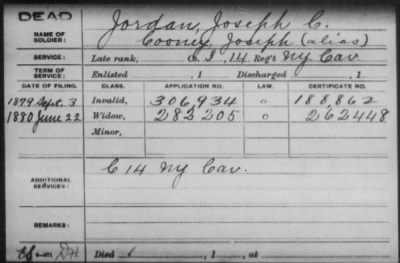 DEAD
Jordan, Joseph C.
NAME OF SOLDIER: Cooney, Joseph (alias)
SERVICE: Late rank, Co. I, 14 Reg't NY Cav
TERM OF SERVICE: Enlisted , 1 Discharged , 1
DATE OF FILING. CLASS. APPLICATION NO. LAW. CERTIFICATE NO.
1879 Sept. 3 Invalid, 306,934 o 188,862
1880 June 22 Widow, 282205 o 262448
Minor,
ADDITIONAL SERVICES: C 14 NY Cav.
REMARKS:
Died , 1 , at